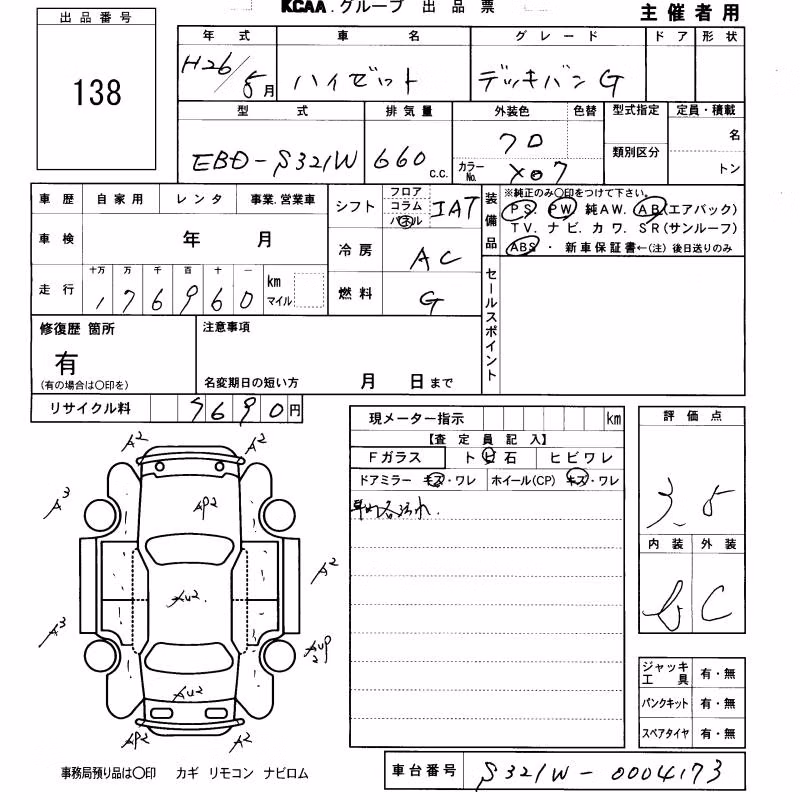 KCAA.グループ 出品票
主催者用
出品番号
138
年式 車名 グレード ドア 形状
H26/5月 ハイゼット デッキバン G
型式 排気量 外装色 色替 型式指定 定員・積載
名
EBD-S321W 660 C.C. カラーNo. X07 類別区分
トン
車歴 自家用 レンタ 事業.営業車
シフト フロア コラム パネル IAT
装備品 ※純正のみ○印をつけて下さい。
PS. PW 純AW. AB(エアバック)
TV. ナビ. カワ. SR(サンルーフ)
ABS ・ 新車保証書←(注)後日送りのみ
車検 年 月
冷房 AC
走行 十万 万 千 百 十 一 km マイル
176960
燃料 G
セールスポイント
修復歴箇所 注意事項
有
(有の場合は○印を) 名変期日の短い方 月 日まで
リサイクル料 9690円
現メーター指示 km
【査定員記入】
Fガラス トビ石 ヒビワレ
ドアミラー キズ・ワレ ホイール(CP) キズ・ワレ
評価点
3.5
内装 外装
C
A2 A2
A3
AP2
A2
AU2.
A3
AUP2
AU2
AP2 A2
ジャッキ工具 有・無
パンクキット 有・無
スペアタイヤ 有・無
事務局預り品は○印 カギ リモコン ナビロム
車台番号 S321W-0004173